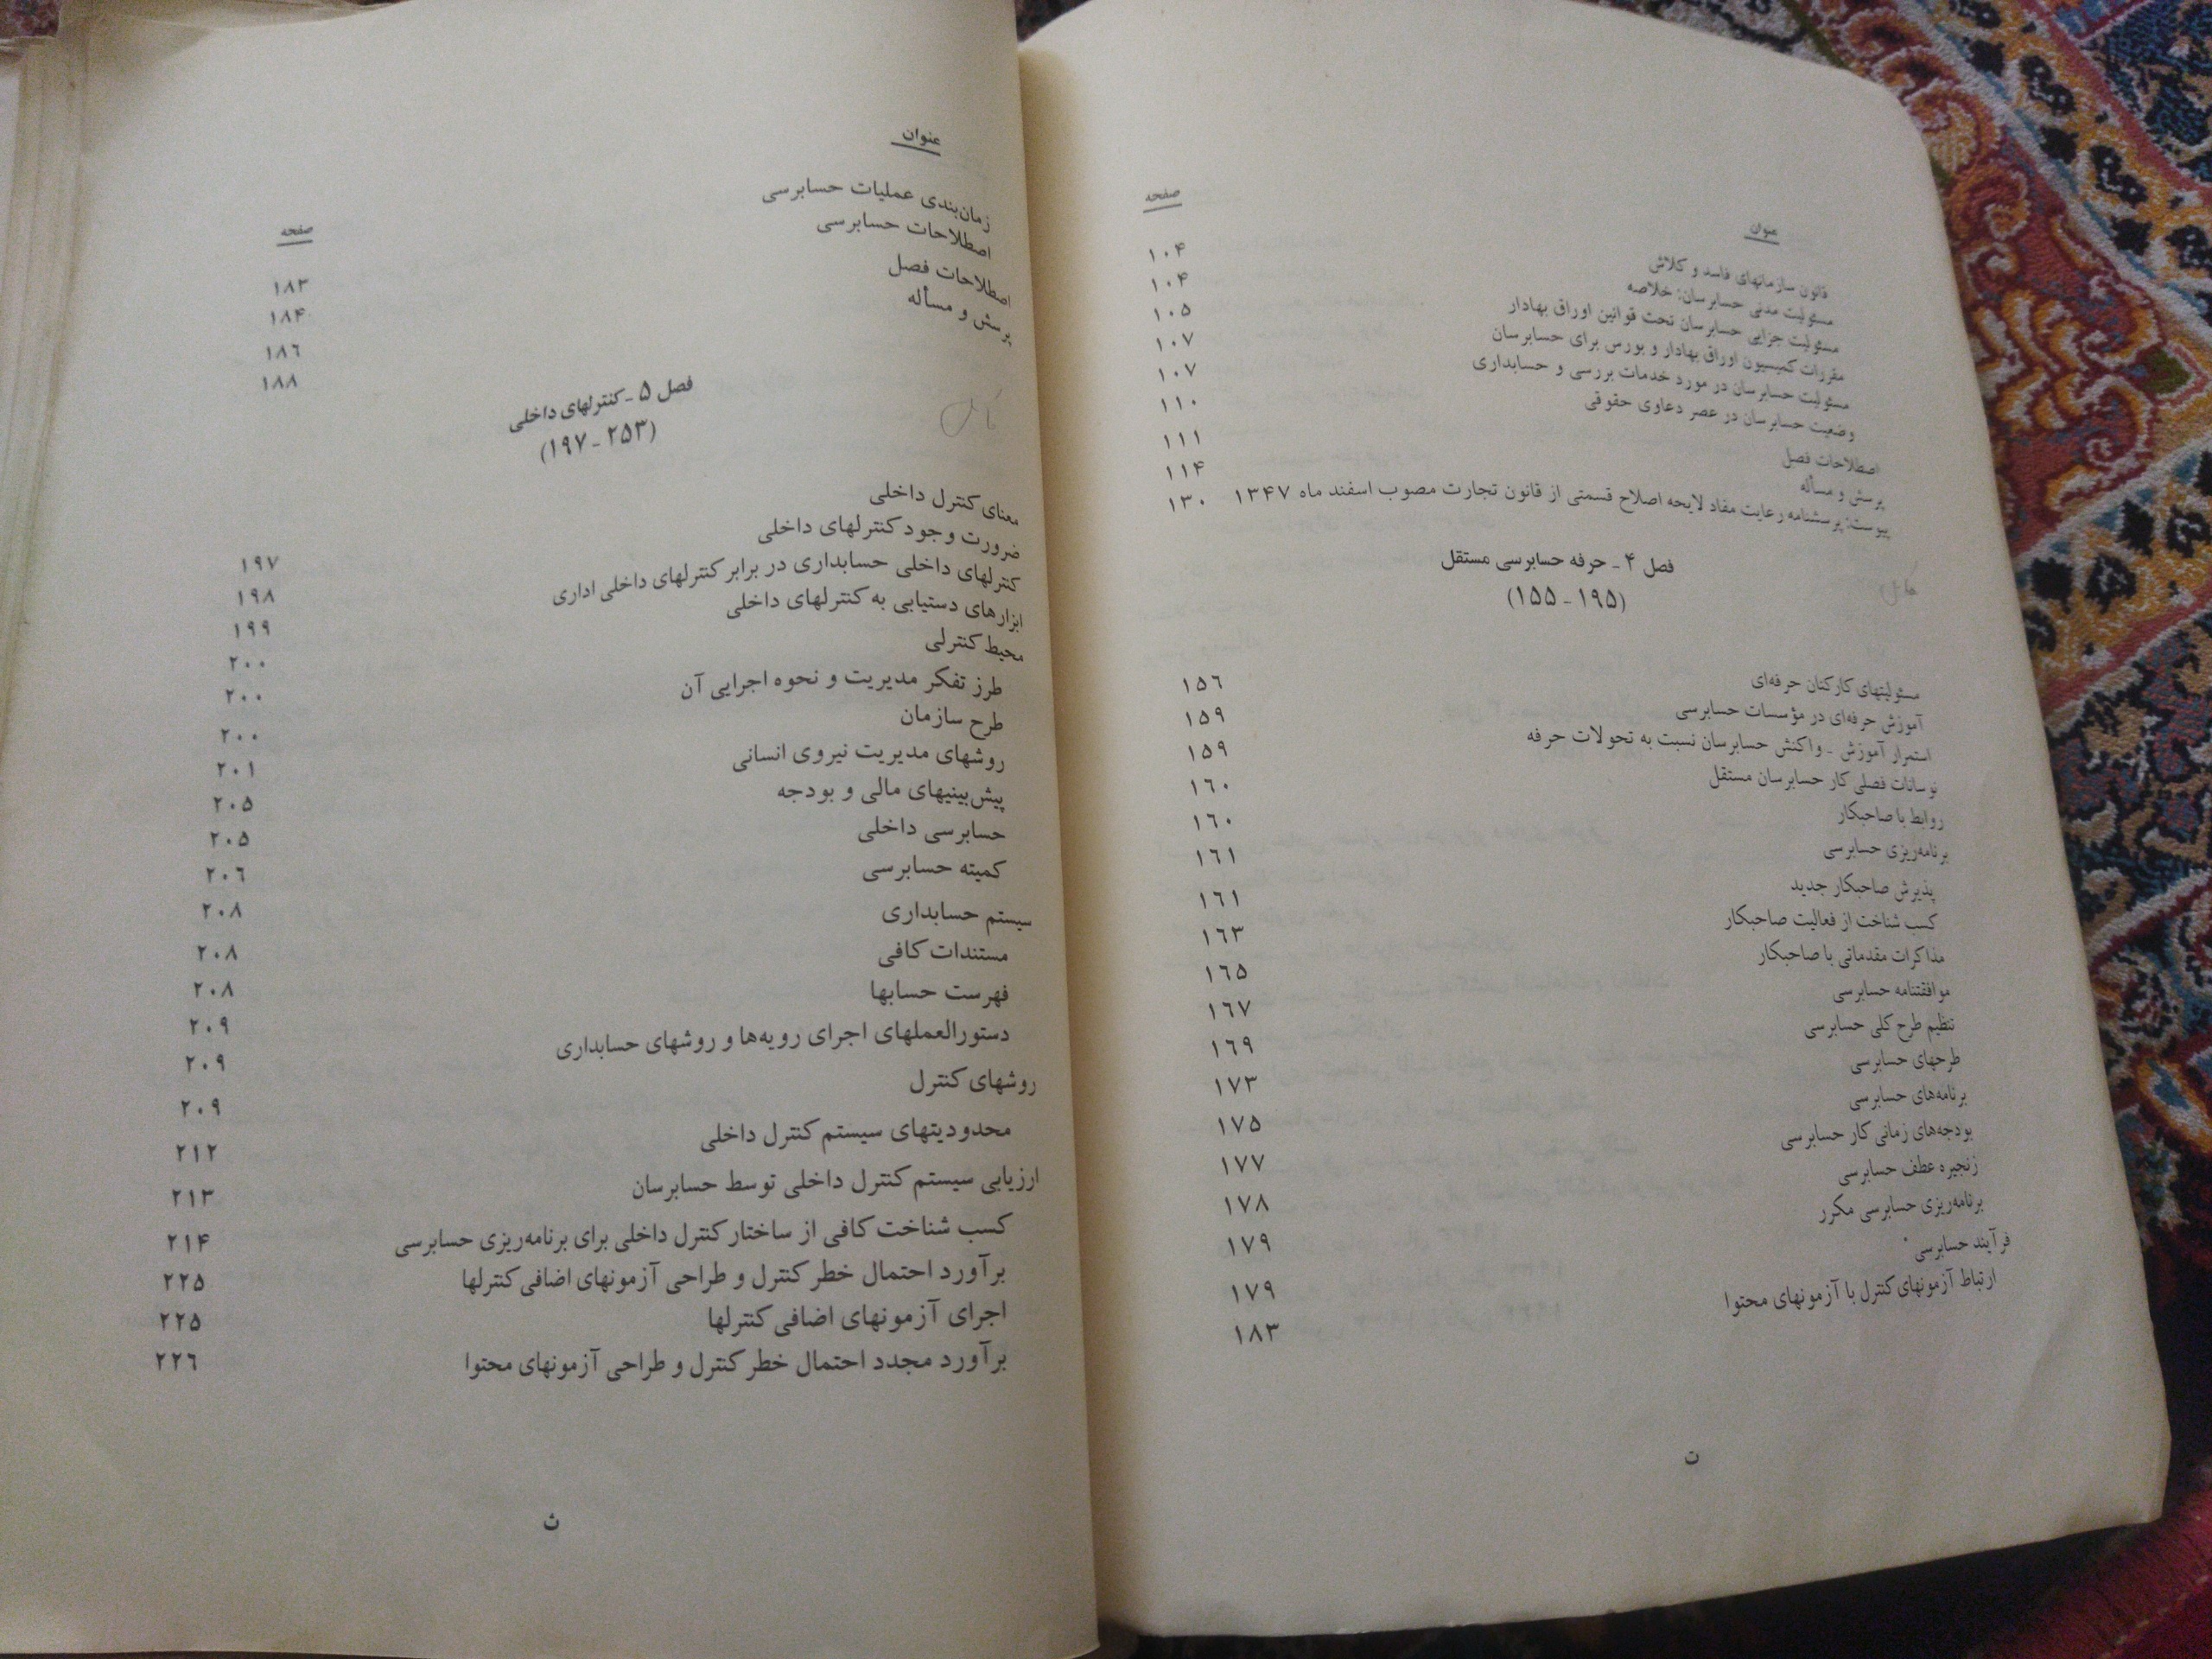 عنوان صفحه
قانون سازمانهای فاسد و کلاش ۱۰۴
مسئولیت مدنی حسابرسان: خلاصه ۱۰۴
مسئولیت جزایی حسابرسان تحت قوانین اوراق بهادار ۱۰۵
مقررات کمیسیون اوراق بهادار و بورس برای حسابرسان ۱۰۷
مسئولیت حسابرسان در مورد خدمات بررسی و حسابداری ۱۰۷
وضعیت حسابرسان در عصر دعاوی حقوقی ۱۱۰
اصطلاحات فصل ۱۱۱
پرسش و مسأله ۱۱۴
پیوست: پرسشنامه رعایت مفاد لایحه اصلاح قسمتی از قانون تجارت مصوب اسفند ماه ۱۳۴۷ ۱۳۰
فصل ۴ ـ حرفه حسابرسی مستقل
(۱۹۵ - ۱۵۵)
مسئولیتهای کارکنان حرفه‌ای ۱۵۶
آموزش حرفه‌ای در مؤسسات حسابرسی ۱۵۹
استمرار آموزش ـ واکنش حسابرسان نسبت به تحولات حرفه ۱۵۹
نوسانات فصلی کار حسابرسان مستقل ۱۶۰
روابط با صاحبکار ۱۶۰
برنامه‌ریزی حسابرسی ۱۶۱
پذیرش صاحبکار جدید ۱۶۱
کسب شناخت از فعالیت صاحبکار ۱۶۳
مذاکرات مقدماتی با صاحبکار ۱۶۵
موافقتنامه حسابرسی ۱۶۷
تنظیم طرح کلی حسابرسی ۱۶۹
طرحهای حسابرسی ۱۷۳
برنامه‌های حسابرسی ۱۷۵
بودجه‌های زمانی کار حسابرسی ۱۷۷
زنجیره عطف حسابرسی ۱۷۸
برنامه‌ریزی حسابرسی مکرر ۱۷۹
فرآیند حسابرسی ۱۷۹
ارتباط آزمونهای کنترل با آزمونهای محتوا ۱۸۳
ت
عنوان صفحه
زمان‌بندی عملیات حسابرسی ۱۸۳
اصطلاحات حسابرسی ۱۸۴
اصطلاحات فصل ۱۸۶
پرسش و مسأله ۱۸۸
فصل ۵ ـ کنترلهای داخلی
(۲۵۳ - ۱۹۷)
معنای کنترل داخلی ۱۹۷
ضرورت وجود کنترلهای داخلی ۱۹۸
کنترلهای داخلی حسابداری در برابر کنترلهای داخلی اداری ۱۹۹
ابزارهای دستیابی به کنترلهای داخلی ۲۰۰
محیط کنترلی ۲۰۰
طرز تفکر مدیریت و نحوه اجرایی آن ۲۰۰
طرح سازمان ۲۰۱
روشهای مدیریت نیروی انسانی ۲۰۵
پیش‌بینیهای مالی و بودجه ۲۰۵
حسابرسی داخلی ۲۰۶
کمیته حسابرسی ۲۰۸
سیستم حسابداری ۲۰۸
مستندات کافی ۲۰۸
فهرست حسابها ۲۰۹
دستورالعملهای اجرای رویه‌ها و روشهای حسابداری ۲۰۹
روشهای کنترل ۲۰۹
محدودیتهای سیستم کنترل داخلی ۲۱۲
ارزیابی سیستم کنترل داخلی توسط حسابرسان ۲۱۳
کسب شناخت کافی از ساختار کنترل داخلی برای برنامه‌ریزی حسابرسی ۲۱۴
برآورد احتمال خطر کنترل و طراحی آزمونهای اضافی کنترلها ۲۲۵
اجرای آزمونهای اضافی کنترلها ۲۲۵
برآورد مجدد احتمال خطر کنترل و طراحی آزمونهای محتوا ۲۲۶
ث